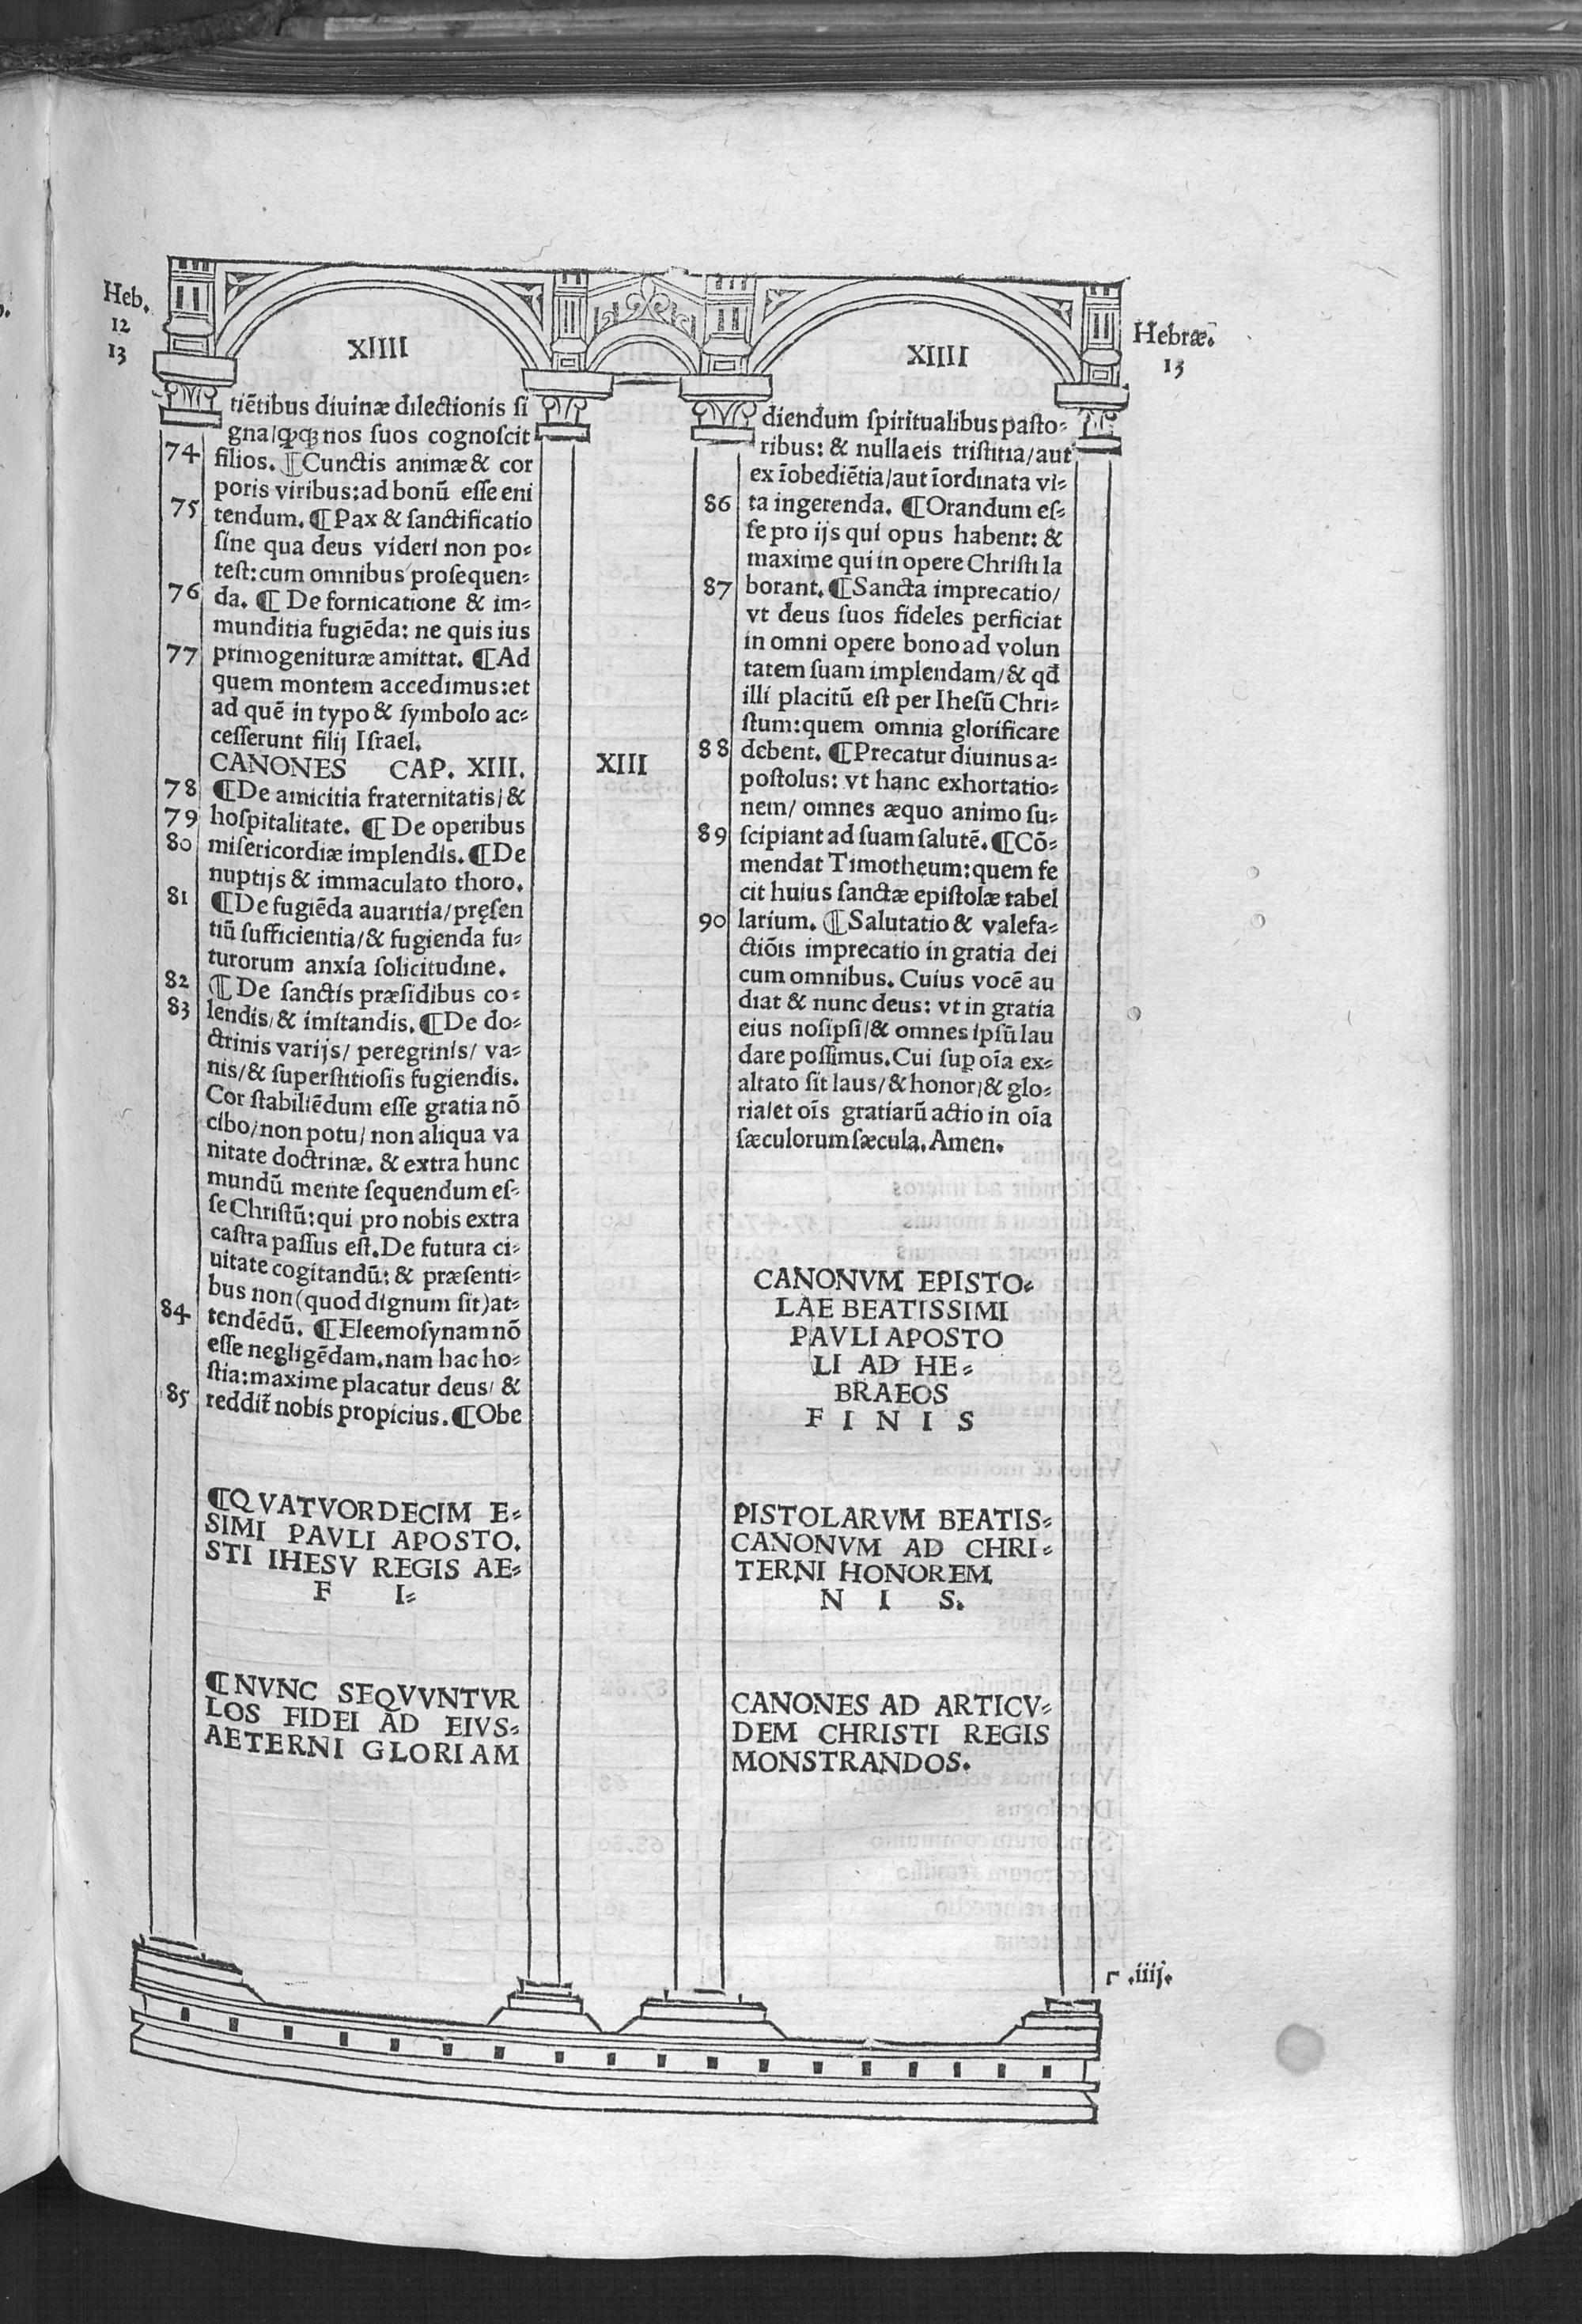 Heb.
12
13
XIIII
tiētibus diuinæ dilectionis ſi
gna/ꝙꝗꝫ nos ſuos cognoſcit
74 filios. ¶Cunctis animæ & cor
poris viribus: ad bonū eſſe eni
75 tendum. ¶Pax & ſanctificatio
ſine qua deus videri non po⸗
teſt: cum omnibus proſequen⸗
76 da. ¶ De fornicatione & im⸗
munditia fugiēda: ne quis ius
77 primogenituræ amittat. ¶Ad
quem montem accedimus: et
ad quē in typo & ſymbolo ac⸗
ceſſerunt filij Iſrael.
CANONES CAP. XIII.
78 ¶De amicitia fraternitatis/ &
79 hoſpitalitate. ¶ De operibus
80 miſericordiæ implendis. ¶De
nuptijs & immaculato thoro.
81 ¶De fugiēda auaritia/ pręſen
tiū ſufficientia/ & fugienda fu⸗
turorum anxia ſolicitudine.
82 ¶De ſanctis præſidibus co⸗
83 lendis/ & imitandis. ¶De do⸗
ctrinis varijs/ peregrinis/ va⸗
nis/ & ſuperſtitioſis fugiendis.
Cor ſtabiliēdum eſſe gratia nō
cibo/ non potu/ non aliqua va
nitate doctrinæ. & extra hunc
mundū mente ſequendum eſ⸗
ſe Chriſtū: qui pro nobis extra
caſtra paſſus eſt. De futura ci⸗
uitate cogitandū: & præſenti⸗
bus non (quod dignum ſit) at⸗
84 tendēdū. ¶Eleemoſynam nō
eſſe negligēdam. nam hac ho⸗
ſtia: maxime placatur deus/ &
85 reddit̄ nobis propicius. ¶Obe
¶QVATVORDECIM E⸗
SIMI PAVLI APOSTO.
STI IHESV REGIS AE⸗
F I⸗
¶NVNC SEQVVNTVR
LOS FIDEI AD EIVS⸗
AETERNI GLORIAM
XIII
Hebræ.
13
XIIII
diendum ſpiritualibus paſto⸗
ribus: & nulla eis triſtitia/ aut
ex īobediētia/ aut īordinata vi⸗
86 ta ingerenda. ¶Orandum eſ⸗
ſe pro ijs qui opus habent: &
maxime qui in opere Chriſti la
87 borant. ¶Sancta imprecatio/
vt deus ſuos fideles perficiat
in omni opere bono ad volun
tatem ſuam implendam/ & qđ
illi placitū eſt per Iheſū Chri⸗
ſtum: quem omnia glorificare
88 debent. ¶Precatur diuinus a⸗
poſtolus: vt hanc exhortatio⸗
nem/ omnes æquo animo ſu⸗
89 ſcipiant ad ſuam ſalutē. ¶Cō⸗
mendat Timotheum: quem fe
cit huius ſanctæ epiſtolæ tabel
90 larium. ¶Salutatio & valefa⸗
ctiōis imprecatio in gratia dei
cum omnibus. Cuius vocē au
diat & nunc deus: vt in gratia
eius noſipſi/ & omnes ipſū lau
dare poſſimus. Cui ſuꝑ oīa ex⸗
altato ſit laus/ & honor/ & glo⸗
ria/ et oīs gratiarū actio in oīa
ſæculorum ſæcula. Amen.
CANONVM EPISTO⸗
LAE BEATISSIMI
PAVLI APOSTO
LI AD HE⸗
BRAEOS
F I N I S
PISTOLARVM BEATIS⸗
CANONVM AD CHRI⸗
TERNI HONOREM
N I S.
CANONES AD ARTICV⸗
DEM CHRISTI REGIS
MONSTRANDOS.
r .iiij.